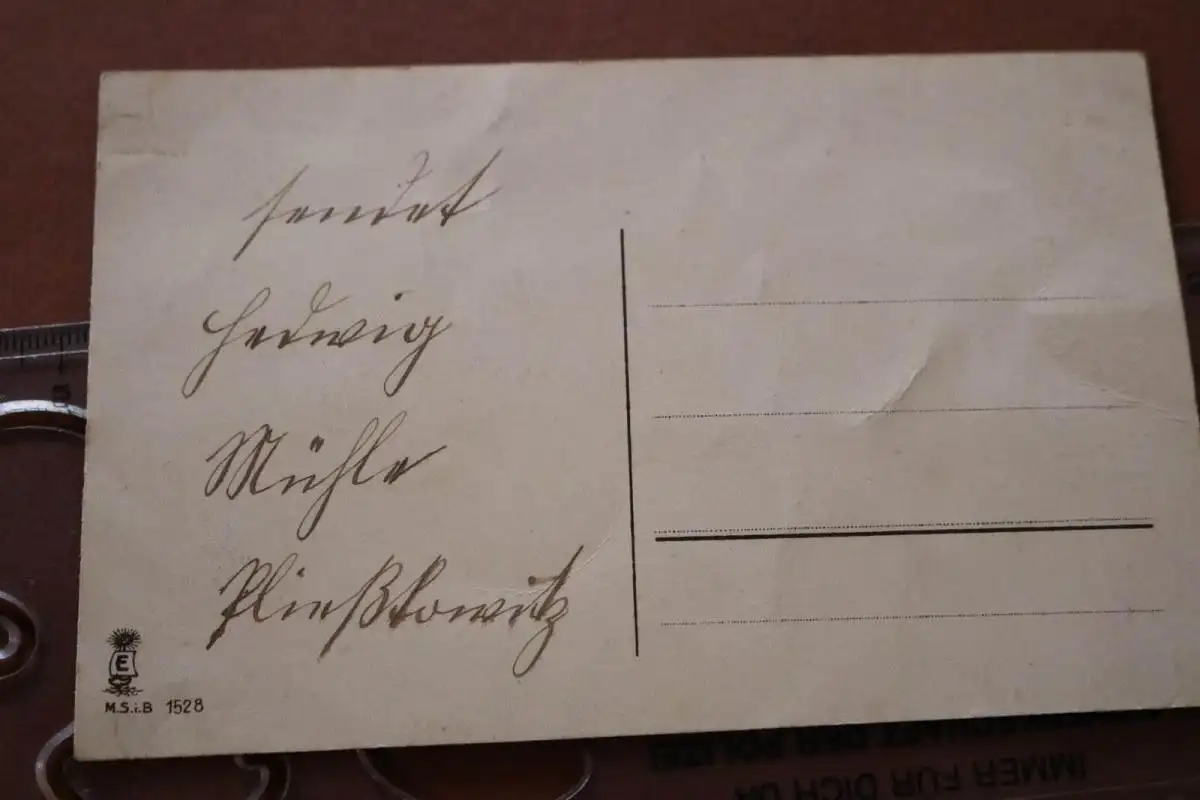 sendet
Hedwig
Mühle
Pließkowitz
E
M.S.i.B 1528
5
IMMER FÜR DICH DA